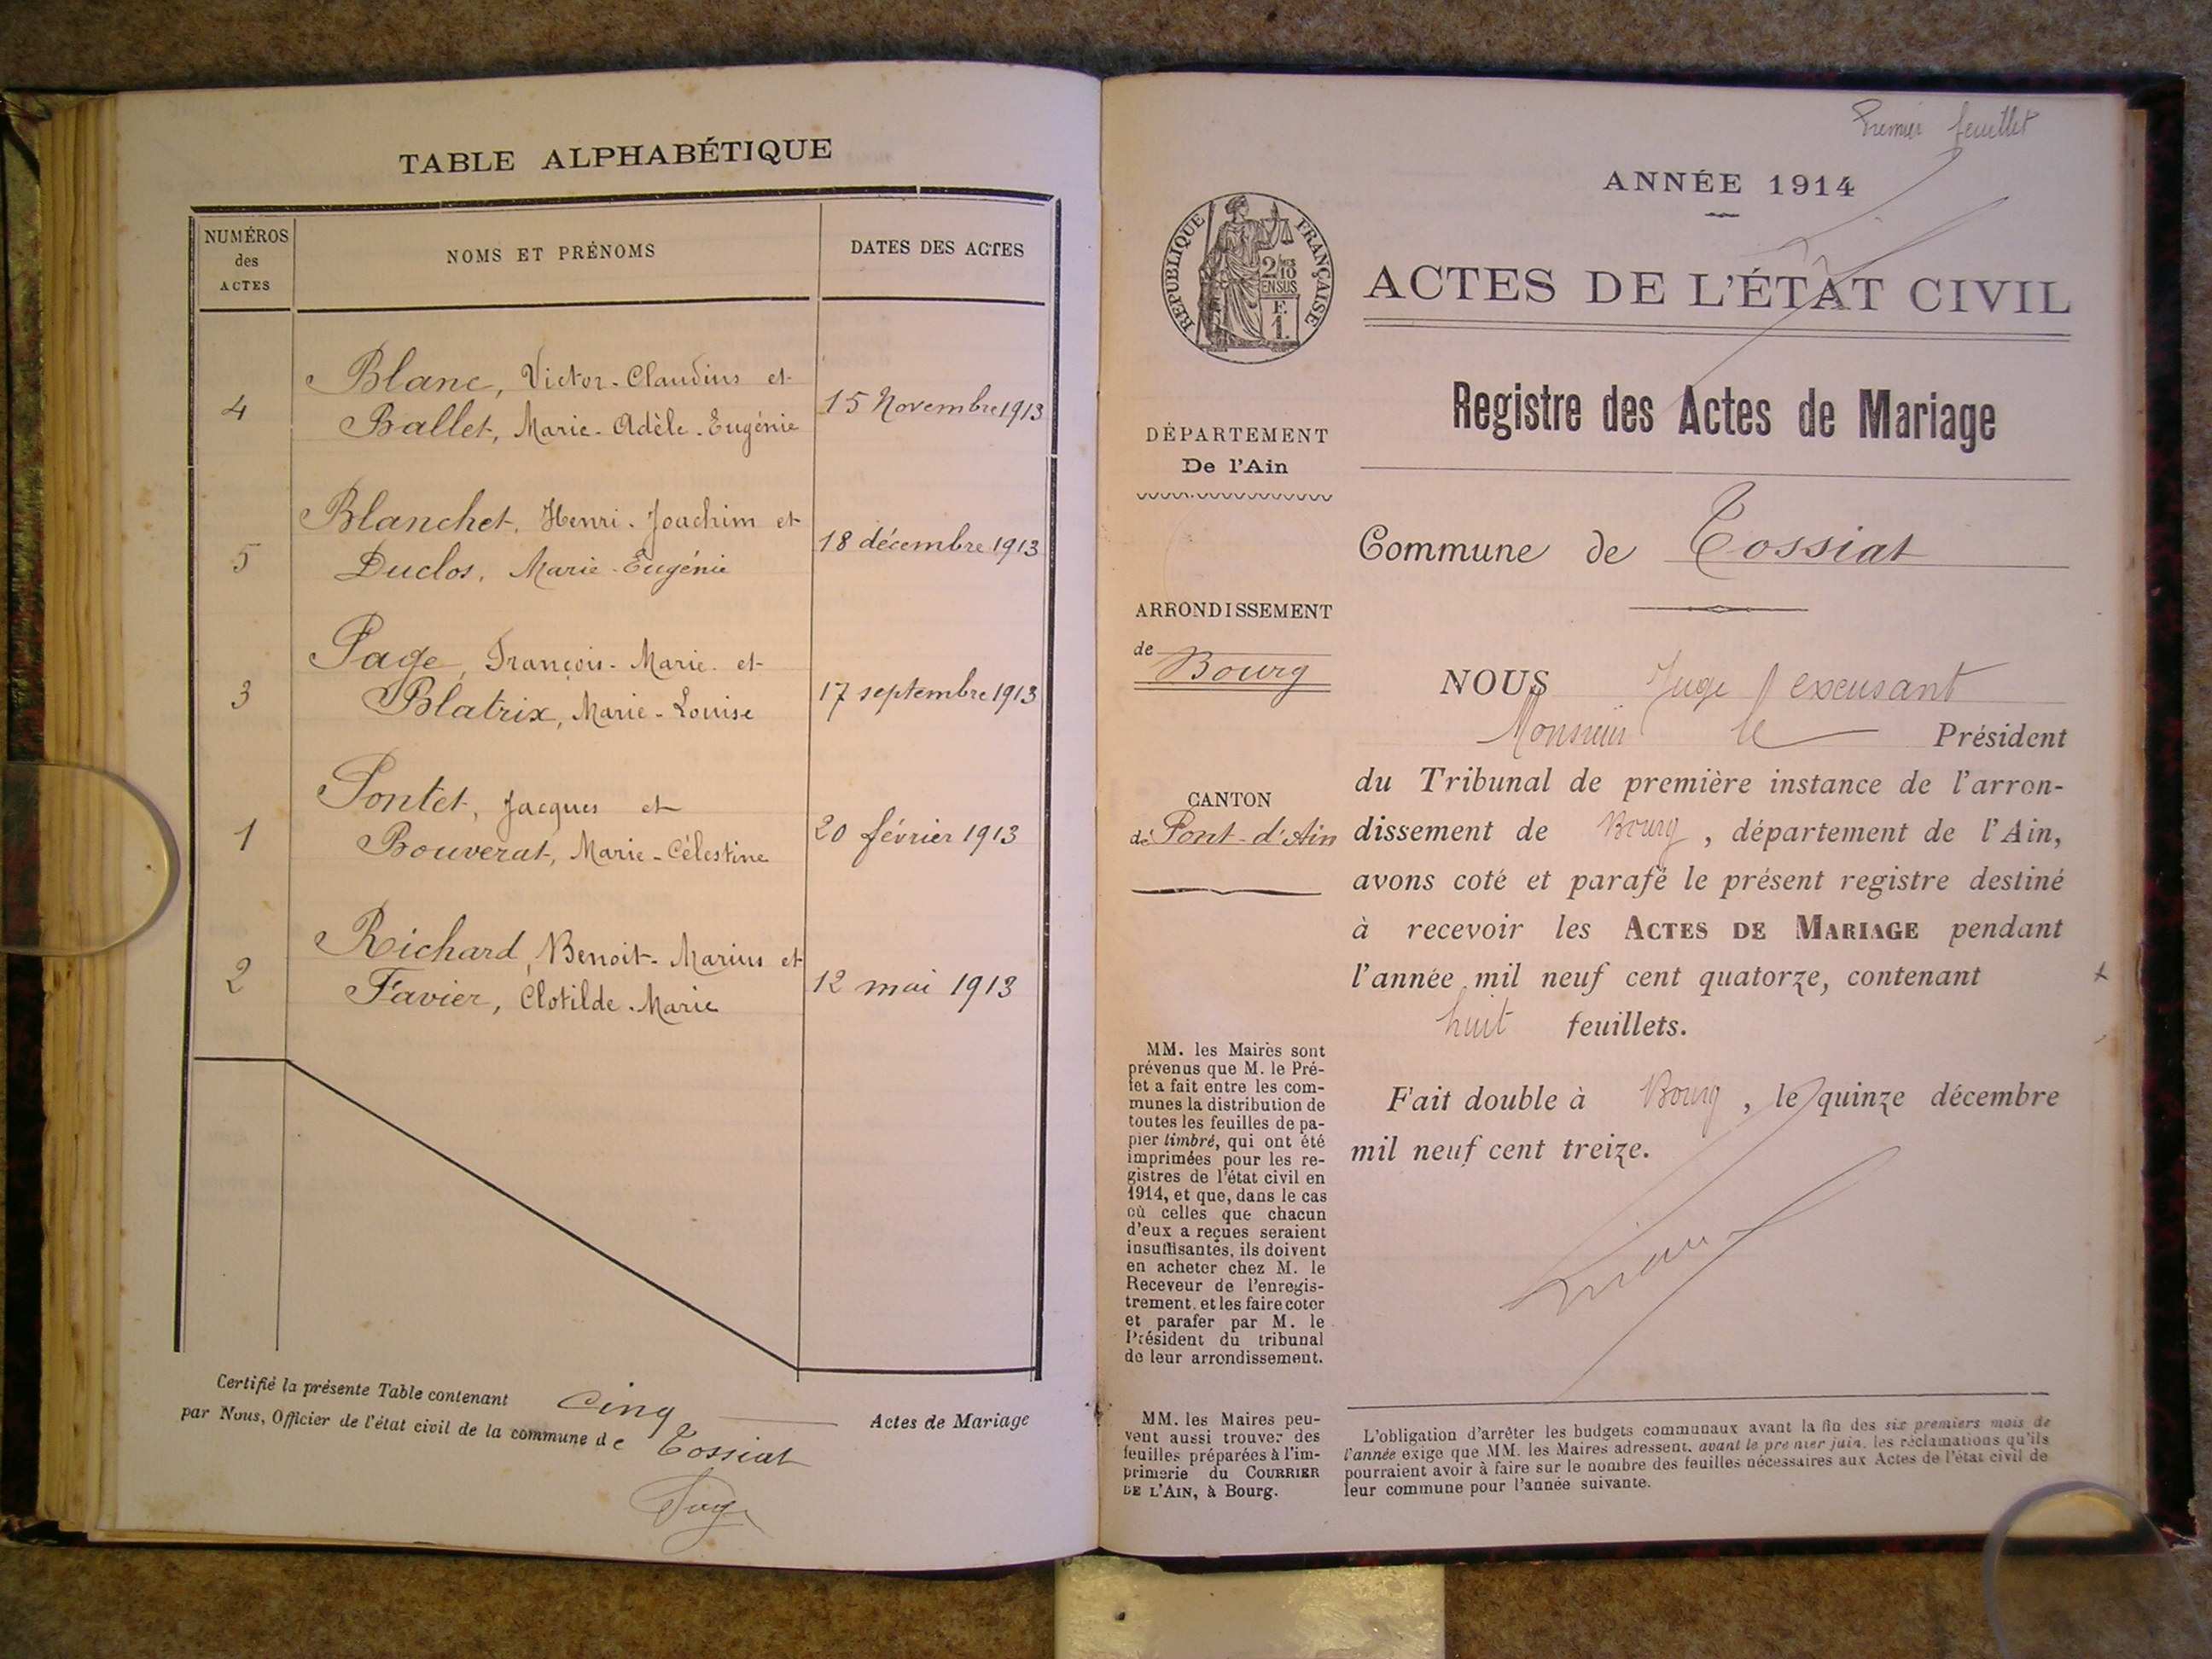 TABLE ALPHABÉTIQUE
NUMÉROS
des
ACTES
NOMS ET PRÉNOMS
DATES DES ACTES
4
Blanc, Victor-Claudius et
Ballet, Marie-Adèle-Eugénie
15 Novembre 1913
5
Blanchet, Henri-Joachim et
Duclos, Marie-Eugénie
18 décembre 1913
3
Page, François-Marie et
Blatrix, Marie-Louise
17 septembre 1913
1
Pontet, Jacques et
Bouverat, Marie-Célestine
20 février 1913
2
Richard, Benoit-Marius et
Favier, Clotilde-Marie
12 mai 1913
Certifié la présente Table contenant cinq Actes de Mariage
par Nous, Officier de l'état civil de la commune de Tossiat
Premier feuillet
ANNÉE 1914
RÉPUBLIQUE FRANÇAISE
2/10
EN SUS
F.
1.
ACTES DE L'ÉTAT CIVIL
Registre des Actes de Mariage
DÉPARTEMENT
De l'Ain
Commune de Tossiat
ARRONDISSEMENT
de Bourg
CANTON
de Pont-d'Ain
NOUS Juge excusant
Monsieur le Président
du Tribunal de première instance de l'arron-
dissement de Bourg, département de l'Ain,
avons coté et parafé le présent registre destiné
à recevoir les ACTES DE MARIAGE pendant
l'année mil neuf cent quatorze, contenant
huit feuillets.
Fait double à Bourg, le quinze décembre
mil neuf cent treize.
MM. les Maires sont
prévenus que M. le Pré-
fet a fait entre les com-
munes la distribution de
toutes les feuilles de pa-
pier timbré, qui ont été
imprimées pour les re-
gistres de l'état civil en
1914, et que, dans le cas
où celles que chacun
d'eux a reçues seraient
insuffisantes, ils doivent
en acheter chez M. le
Receveur de l'enregis-
trement, et les faire coter
et parafer par M. le
Président du tribunal
de leur arrondissement.
MM. les Maires peu-
vent aussi trouver des
feuilles préparées à l'im-
primerie du COURRIER
DE L'AIN, à Bourg.
L'obligation d'arrêter les budgets communaux avant la fin des six premiers mois de
l'année exige que MM. les Maires adressent, avant le premier juin, les réclamations qu'ils
pourraient avoir à faire sur le nombre des feuilles nécessaires aux Actes de l'état civil de
leur commune pour l'année suivante.